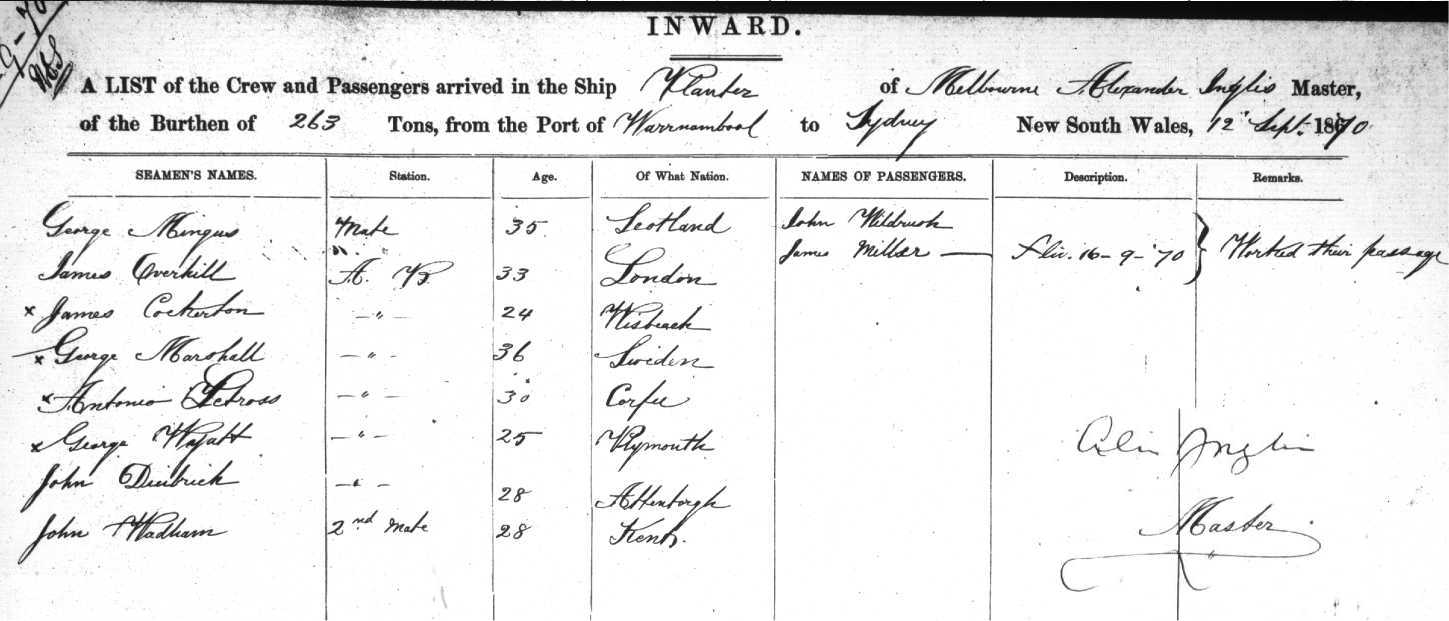 INWARD.
A LIST of the Crew and Passengers arrived in the Ship Planter of Melbourne Alexander Inglis Master,
of the Burthen of 263 Tons, from the Port of Warrnambool to Sydney New South Wales, 12 Sept. 1870.
SEAMEN'S NAMES. Station. Age. Of What Nation. NAMES OF PASSENGERS. Description. Remarks.
George Mingus Mate 35 Scotland John
James Miller — 16-9-'70 } Worked their passage
James Overhill A. B. 33 London
x James Cockerton —"— 24 Wisbeach
x George Marshall —"— 36 Sweden
x Antonio —"— 30 Corfu
x George Wyatt —"— 25 Plymouth
John —"— 28
John Wadham 2nd Mate 28 Kent.
Inglis
Master